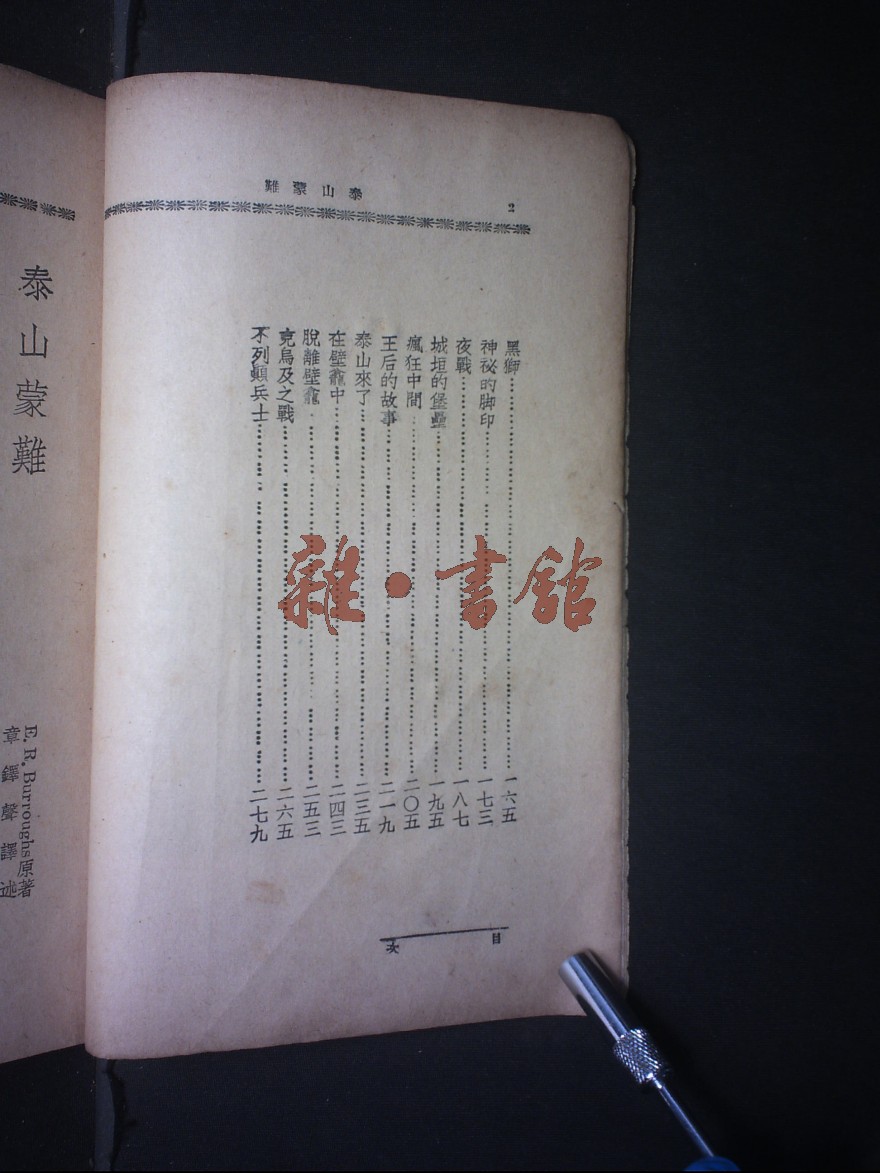 泰山蒙難
2
黑獅……一六五
神祕的脚印……一七三
夜戰……一八七
城垣的堡壘……一九五
瘋狂中間……二〇五
王后的故事……二一九
泰山來了……二三五
在壁龕中……二四三
脫離壁龕……二五三
烏及之戰……二六五
不列顛兵士……二七九
目次
泰山蒙難
E. R. Burroughs原著
章鐸聲譯述
雜·書館